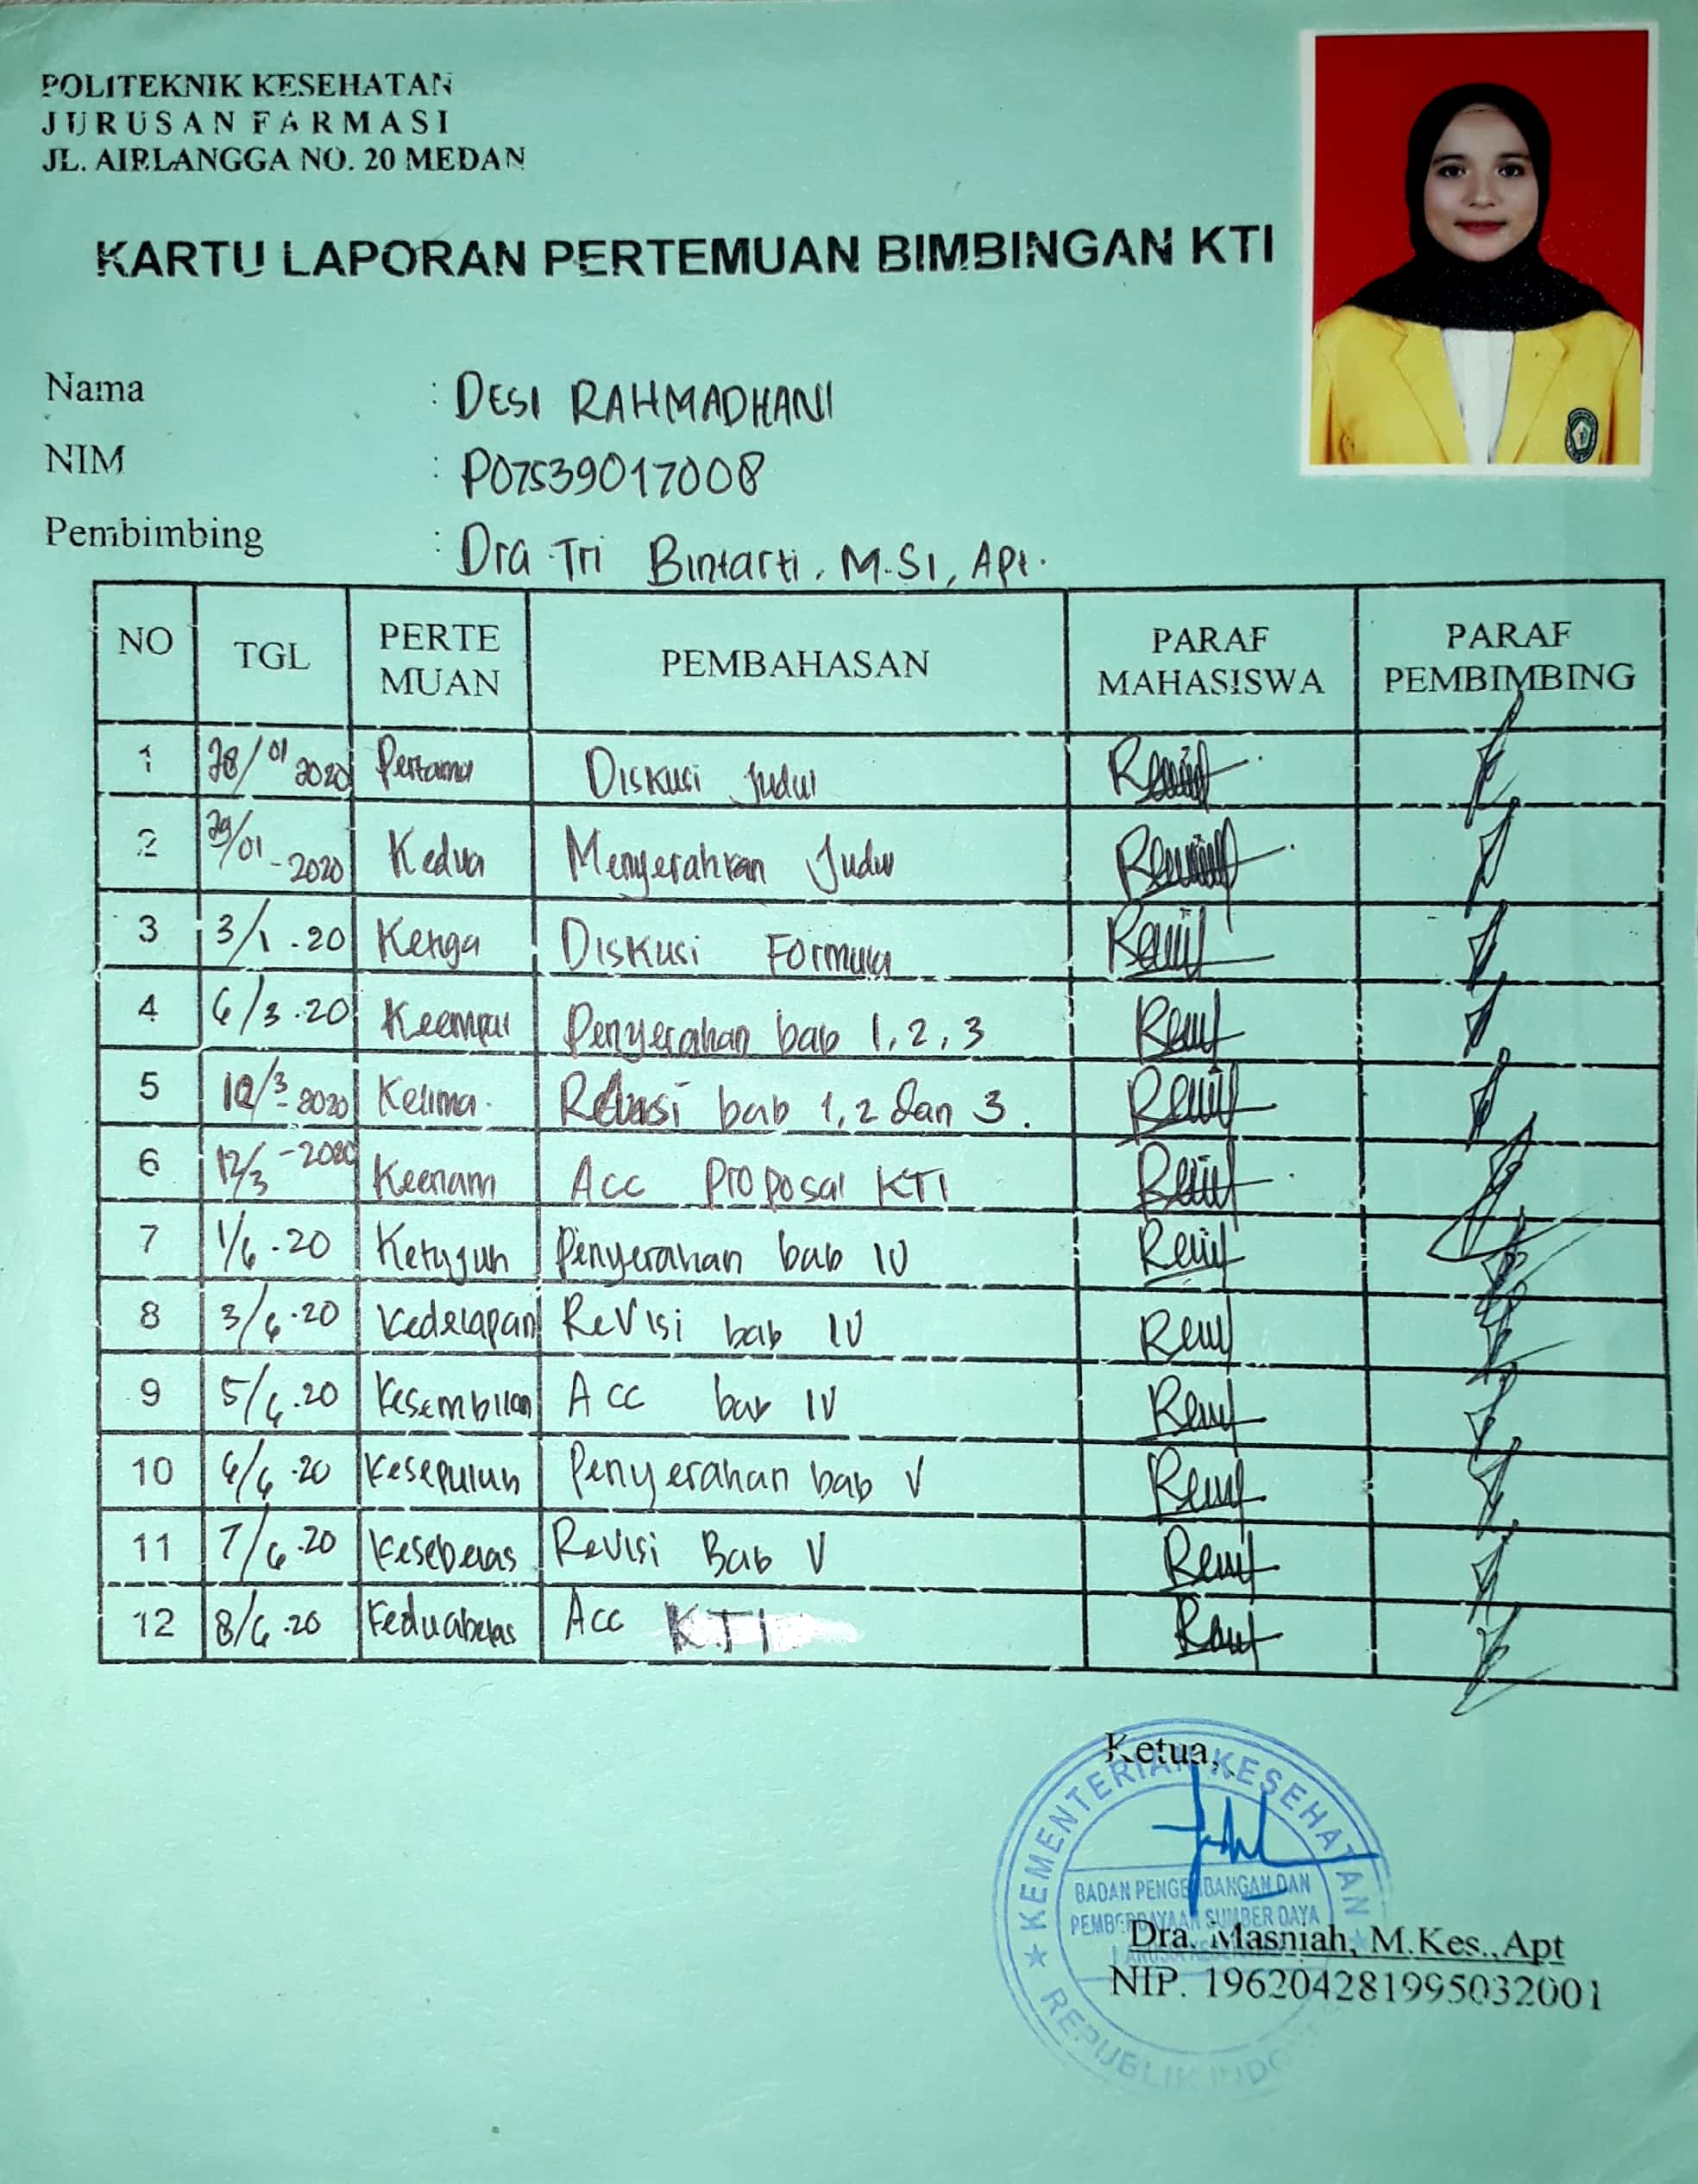 POLITEKNIK KESEHATAN
JURUSAN FARMASI
JL. AIRLANGGA NO. 20 MEDAN
KARTU LAPORAN PERTEMUAN BIMBINGAN KTI
Nama : DESI RAHMADHANI
NIM : P07539017008
Pembimbing : Dra Tri Bintarti, M.Si, Apt.
NO TGL PERTE MUAN PEMBAHASAN PARAF MAHASISWA PARAF PEMBIMBING
1 28/01 2020 Pertama Diskusi Judul
2 29/01-2020 Kedua Menyerahkan Judul
3 3/1.20 Ketiga Diskusi Formula
4 6/3.20 Keempat Penyerahan bab 1, 2, 3
5 10/3-2020 Kelima. Revisi bab 1, 2 dan 3.
6 12/3-2020 Keenam Acc Proposal KTI
7 1/6.20 Ketujuh Penyerahan bab IV
8 3/6.20 Kedelapan Revisi bab IV
9 5/6.20 Kesembilan Acc bab IV
10 6/6.20 Kesepuluh Penyerahan bab V
11 7/6.20 Kesebelas Revisi Bab V
12 8/6.20 Keduabelas Acc KTI
Ketua,
KEMENTERIAN KESEHATAN
BADAN PENGEMBANGAN DAN
PEMBERDAYAAN SUMBER DAYA
Dra. Masniah, M.Kes., Apt
NIP. 196204281995032001
REPUBLIK INDO